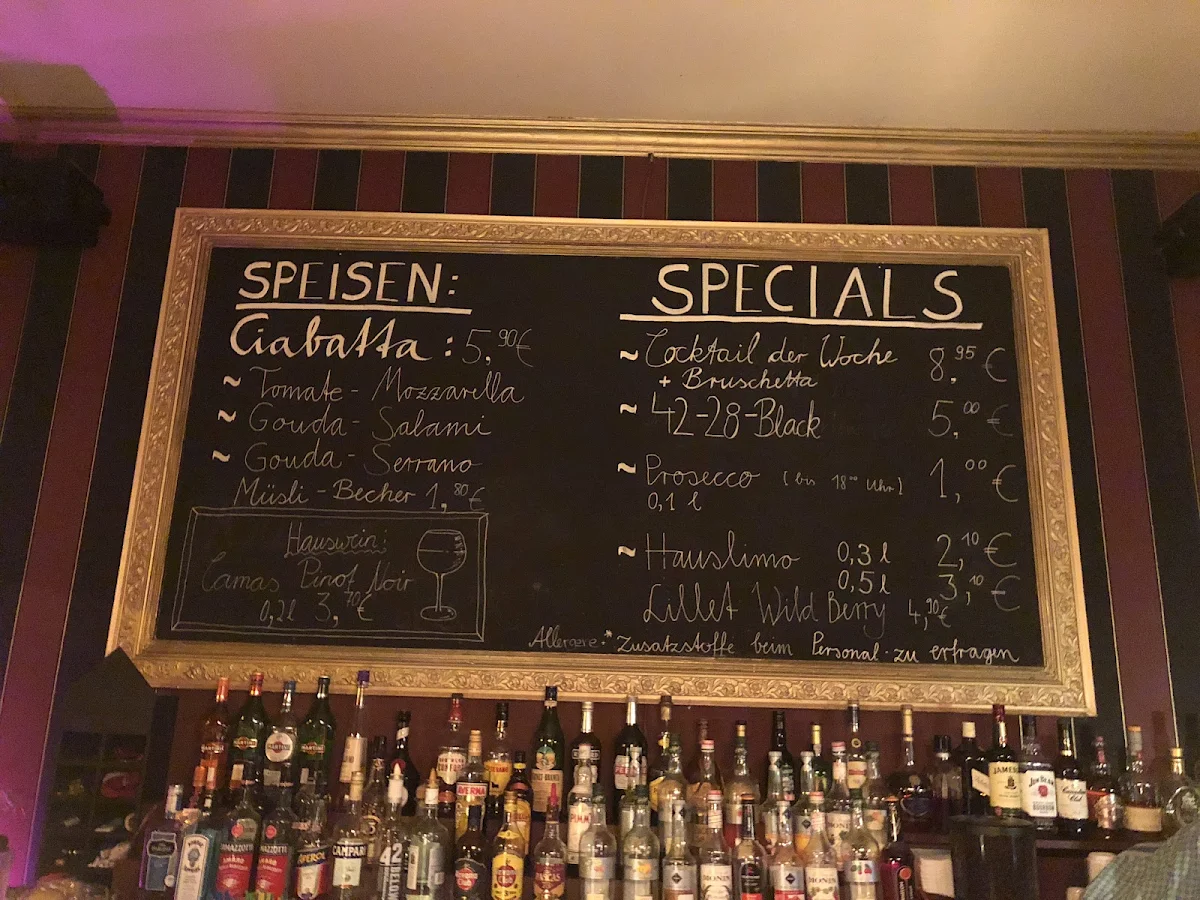 SPEISEN:
Ciabatta : 5,90€
~ Tomate - Mozzarella
~ Gouda - Salami
~ Gouda - Serrano
Müsli - Becher 1,80€
Hauswein:
Camas Pinot Noir
0,2l 3,70€
SPECIALS
~ Cocktail der Woche 8.95 €
+ Bruschetta
~ 42-28-Black 5.00 €
~ Prosecco (bis 18°° Uhr) 1,00 €
0,1 l
~ Hauslimo 0,3 l 2,10 €
0,5 l 3,10 €
Lillet Wild Berry 4,90€
Allergene:* Zusatzstoffe beim Personal zu erfragen
MARTINI
AVERNA
RAMAZZOTTI
RAMAZZOTTI
APEROL
CAMPARI
42
PIMM'S
MONIN
MONIN
JAMESON
JIM BEAM